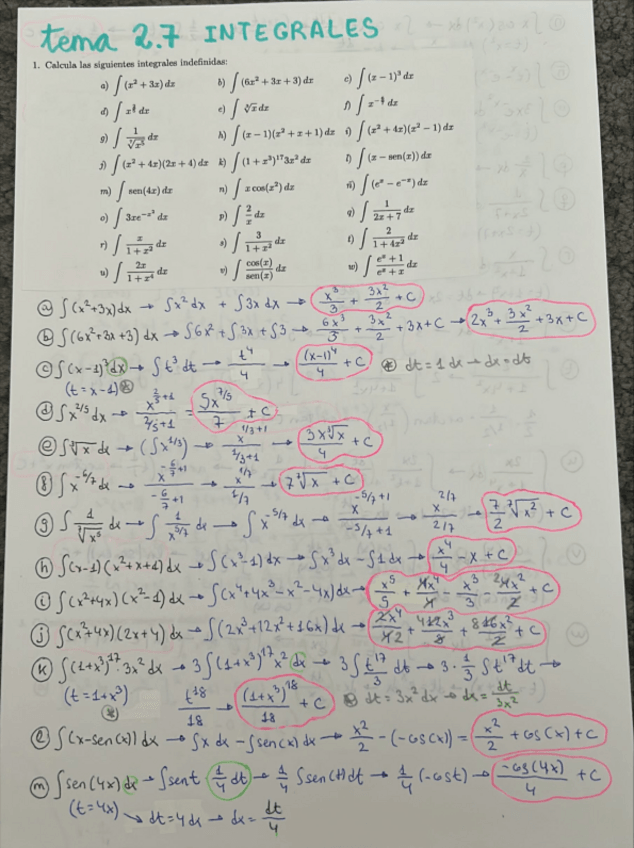 tema 2.7 INTEGRALES
1. Calcula las siguientes integrales indefinidas:
a) ∫(x² + 3x) dx b) ∫(6x² + 3x + 3) dx c) ∫(x − 1)³ dx
d) ∫x^(2/5) dx e) ∫∛x dx f) ∫x^(−6/7) dx
g) ∫1/⁷√x⁵ dx h) ∫(x − 1)(x² + x + 1) dx i) ∫(x² + 4x)(x² − 1) dx
j) ∫(x² + 4x)(2x + 4) dx k) ∫(1 + x³)¹⁷3x² dx l) ∫(x − sen(x)) dx
m) ∫sen(4x) dx n) ∫x cos(x²) dx ñ) ∫(eˣ − e⁻ˣ) dx
o) ∫3xe^(−x²) dx p) ∫2/x dx q) ∫1/(2x + 7) dx
r) ∫x/(1 + x²) dx s) ∫3/(1 + x²) dx t) ∫2/(1 + 4x²) dx
u) ∫2x/(1 + x⁴) dx v) ∫cos(x)/sen(x) dx w) ∫(eˣ + 1)/(eˣ + x) dx
a ∫(x²+3x)dx → ∫x²dx + ∫3x dx → x³/3 + 3x²/2 + C
b ∫(6x²+3x+3)dx → ∫6x² + ∫3x + ∫3 → 6x³/3 + 3x²/2 + 3x + C → 2x³ + 3x²/2 + 3x + C
c ∫(x-1)³dx → ∫t³dt → t⁴/4 → (x-1)⁴/4 + C * dt = 1dx → dx = dt
(t = x-1) *
d ∫x^(2/5) dx → x^(2/5+1)/(2/5+1) = 5x^(7/5)/7 + C
e ∫∛x dx → (∫x^(1/3)) → x^(1/3+1)/(1/3+1) → 3x∛x/4 + C
f ∫x^(-6/7) dx → x^(-6/7+1)/(-6/7+1) → x^(1/7)/(1/7) → 7⁷√x + C
g ∫1/⁷√x⁵ dx → ∫1/x^(5/7) dx → ∫x^(-5/7) dx → x^(-5/7+1)/(-5/7+1) → x^(2/7)/(2/7) → 7/2 ⁷√x² + C
h ∫(x-1)(x²+x+1)dx → ∫(x³-1)dx → ∫x³dx - ∫1dx → x⁴/4 - x + C
i ∫(x²+4x)(x²-1)dx → ∫(x⁴+4x³-x²-4x)dx → x⁵/5 + 4x⁴/4 - x³/3 - 4x²/2 + C
j ∫(x²+4x)(2x+4)dx → ∫(2x³+12x²+16x)dx → 2x⁴/4 + 12x³/3 + 16x²/2 + C
k ∫(1+x³)¹⁷·3x²dx → 3∫(1+x³)¹⁷x²dx → 3∫t¹⁷/3 dt → 3·1/3 ∫t¹⁷dt →
(t = 1+x³) * t¹⁸/18 → (1+x³)¹⁸/18 + C * dt = 3x²dx → dx = dt/3x²
l ∫(x-sen(x))dx → ∫x dx - ∫sen(x)dx → x²/2 - (-cos(x)) = x²/2 + cos(x) + C
m ∫sen(4x)dx → ∫sent 1/4 dt → 1/4 ∫sen(t)dt → 1/4 (-cost) → -cos(4x)/4 + C
(t = 4x) → dt = 4dx → dx = dt/4